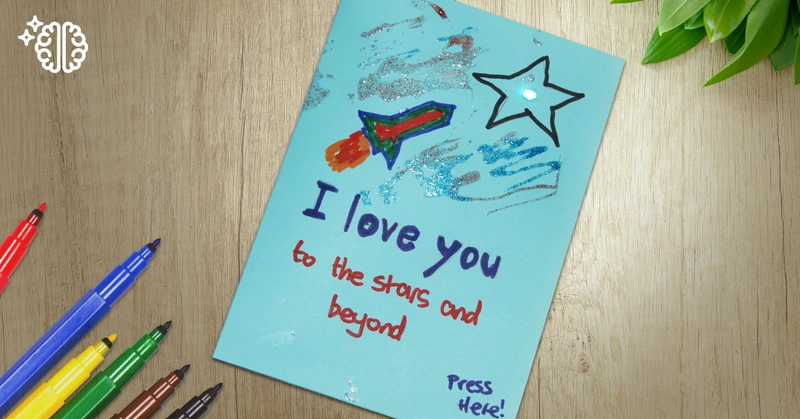 I love you
to the stars and
beyond
Press
Here!